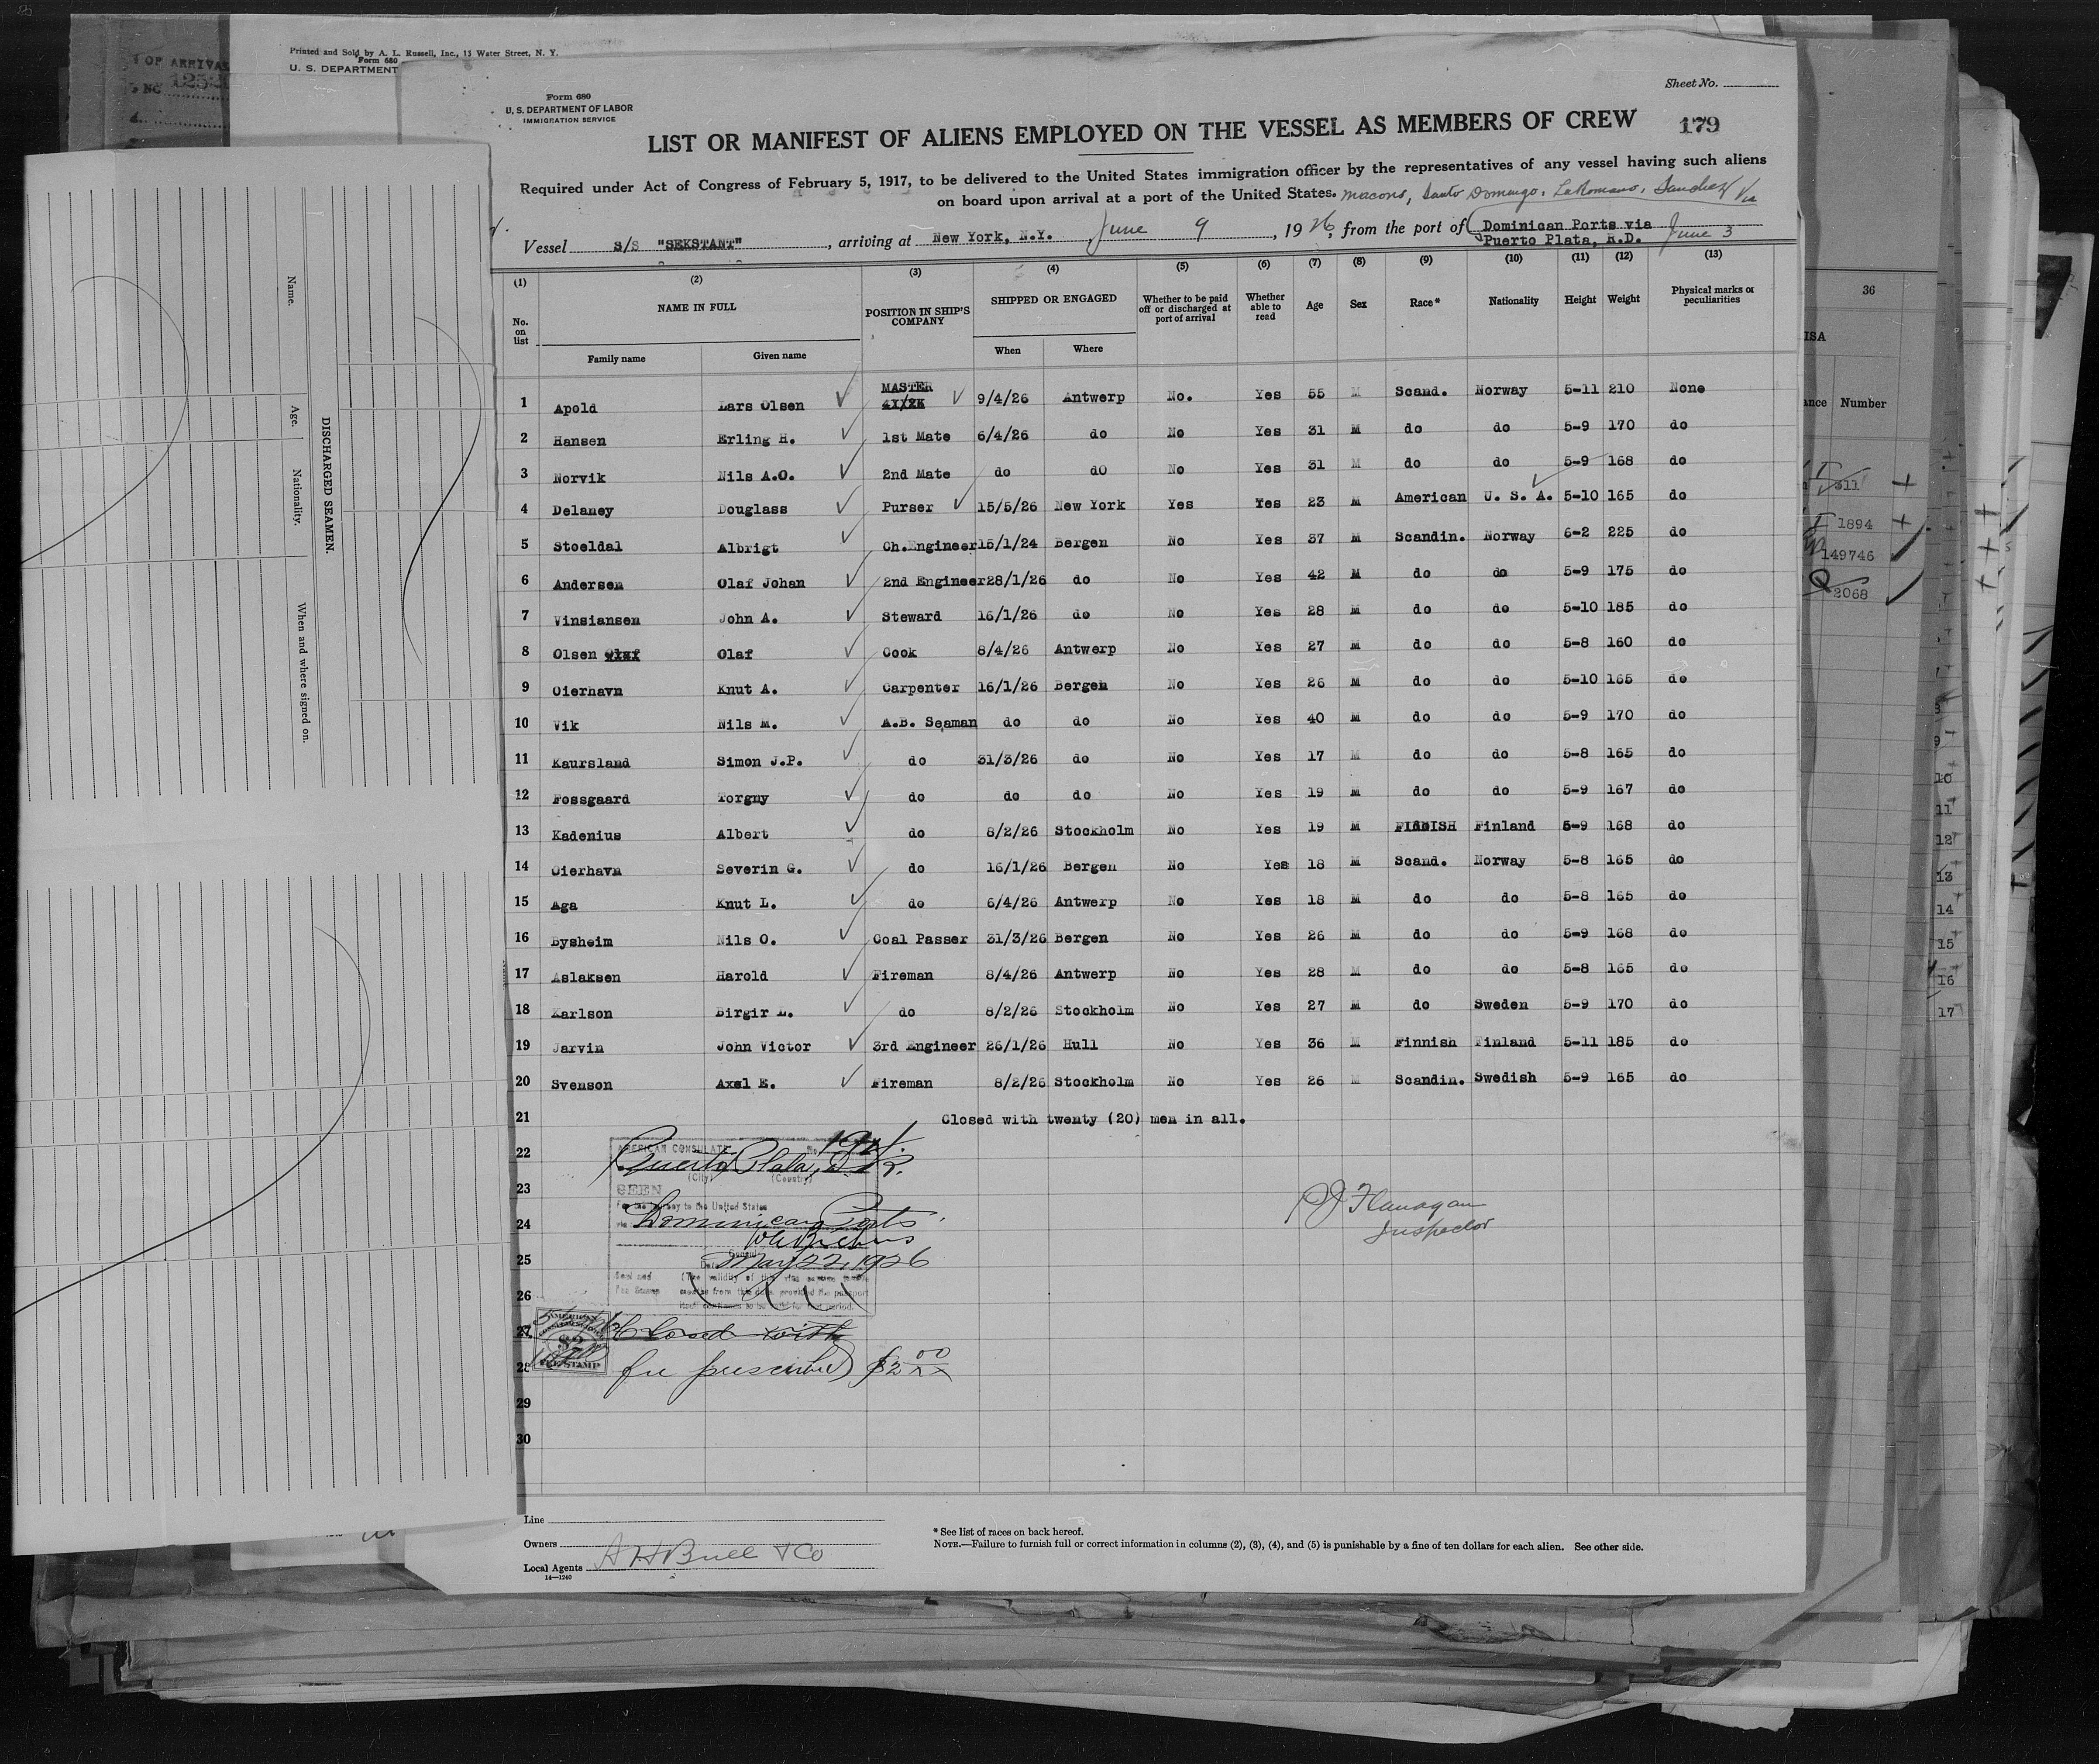 Printed and Sold by A. L. Russell, Inc., 15 Water Street, N. Y.
Form 680
U. S. DEPARTMENT
Sheet No.
Form 680
U. S. DEPARTMENT OF LABOR
IMMIGRATION SERVICE
LIST OR MANIFEST OF ALIENS EMPLOYED ON THE VESSEL AS MEMBERS OF CREW 179
Required under Act of Congress of February 5, 1917, to be delivered to the United States immigration officer by the representatives of any vessel having such aliens
on board upon arrival at a port of the United States. Macoris, Santo Domingo, LaRomano, Sanchez Via
Vessel S/S "SEKSTANT", arriving at New York, N.Y. June 9, 1926, from the port of Dominican Ports via
Puerto Plata, R.D. June 3
(1) (2) (3) (4) (5) (6) (7) (8) (9) (10) (11) (12) (13)
No. on list NAME IN FULL POSITION IN SHIP'S COMPANY SHIPPED OR ENGAGED Whether to be paid off or discharged at port of arrival Whether able to read Age Sex Race* Nationality Height Weight Physical marks or peculiarities
Family name Given name When Where
1 Apold Lars Olsen MASTER 9/4/26 Antwerp No. Yes 55 M Scand. Norway 5-11 210 None
2 Hansen Erling H. 1st Mate 6/4/26 do No Yes 31 M do do 5-9 170 do
3 Norvik Nils A.O. 2nd Mate do do No Yes 31 M do do 5-9 168 do
4 Delaney Douglass Purser 15/5/26 New York Yes Yes 23 M American U. S. A. 5-10 165 do
5 Stoeldal Albrigt Ch.Engineer 15/1/24 Bergen No Yes 37 M Scandin. Norway 6-2 225 do
6 Andersen Olaf Johan 2nd Engineer 28/1/26 do No Yes 42 M do do 5-9 175 do
7 Vinsiansen John A. Steward 16/1/26 do No Yes 28 M do do 5-10 185 do
8 Olsen Olaf Olaf Cook 8/4/26 Antwerp No Yes 27 M do do 5-8 160 do
9 Oierhavn Knut A. Carpenter 16/1/26 Bergen No Yes 26 M do do 5-10 165 do
10 Vik Nils M. A.B. Seaman do do No Yes 40 M do do 5-9 170 do
11 Kaursland Simon J.P. do 31/3/26 do No Yes 17 M do do 5-8 165 do
12 Fossgaard Torgny do do do No Yes 19 M do do 5-9 167 do
13 Kadenius Albert do 8/2/26 Stockholm No Yes 19 M FINNISH Finland 5-9 168 do
14 Oierhavn Severin G. do 16/1/26 Bergen No Yes 18 M Scand. Norway 5-8 165 do
15 Aga Knut L. do 6/4/26 Antwerp No Yes 18 M do do 5-8 165 do
16 Bysheim Nils O. Coal Passer 31/3/26 Bergen No Yes 26 M do do 5-9 168 do
17 Aslaksen Harold Fireman 8/4/26 Antwerp No Yes 28 M do do 5-8 165 do
18 Karlson Birgir L. do 8/2/26 Stockholm No Yes 27 M do Sweden 5-9 170 do
19 Jarvin John Victor 3rd Engineer 26/1/26 Hull No Yes 36 M Finnish Finland 5-11 185 do
20 Svenson Axel E. Fireman 8/2/26 Stockholm No Yes 26 M Scandin. Swedish 5-9 165 do
21 Closed with twenty (20) men in all.
22 AMERICAN CONSULATE No.
Puerto Plata, D.R.
(City) (Country)
23 SEEN
For the journey to the United States
24 via Dominican Ports
25 Date May 22, 1926
26
27 Closed with
28 fee prescribed $2 00
29
30
PJ Flanagan
Inspector
AMERICAN
$2
FEE STAMP
Line
Owners
Local Agents A H Bull & Co
14—1240
* See list of races on back hereof.
NOTE.—Failure to furnish full or correct information in columns (2), (3), (4), and (5) is punishable by a fine of ten dollars for each alien. See other side.
DISCHARGED SEAMEN.
Name. Age. Nationality. When and where signed on.
36
Number
311
1894
149746
2068
9
10
11
12
13
14
15
16
17